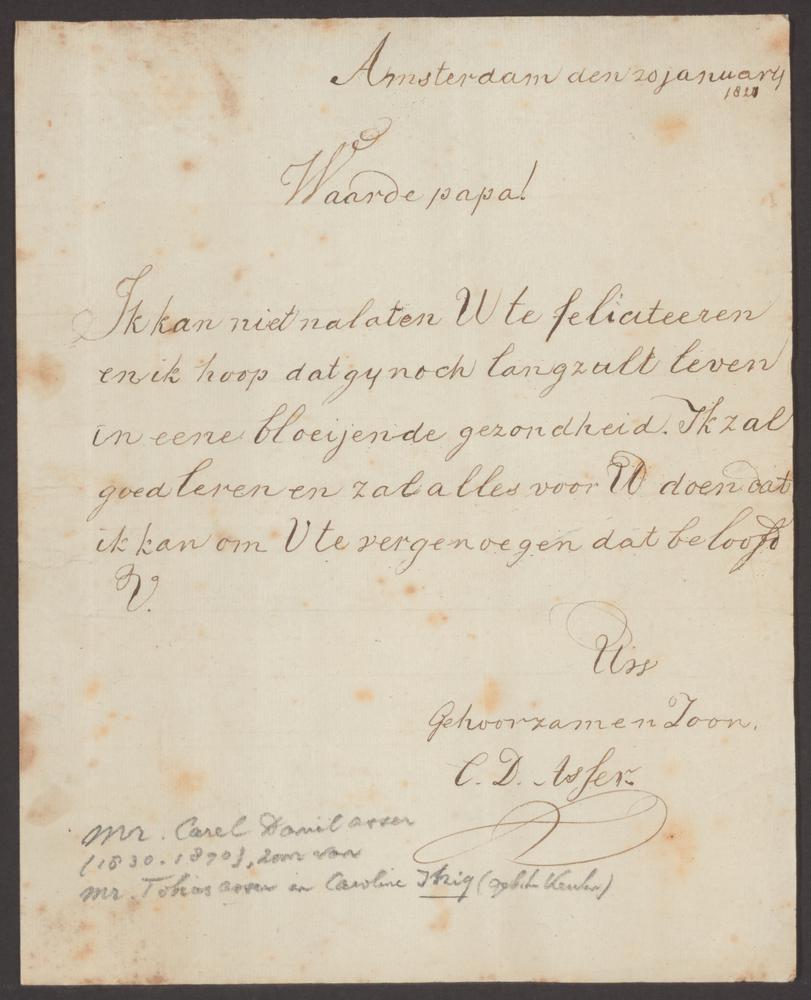 Amsterdam den 20 january
Waarde papa!
Ik kan niet nalaten U te feliciteeren
en ik hoop dat gy noch lang zult leven
in eene bloeijende gezondheid. Ik zal
goed leren en zal alles voor U doen dat
ik kan om U te vergenoegen dat belooft
U.
Uw
Gehoorzamen Zoon.
C. D. Asser
Mr. Carel Daniel Asser
(1830-1890), zoon van
Mr. Tobias Asser en Caroline Itzig